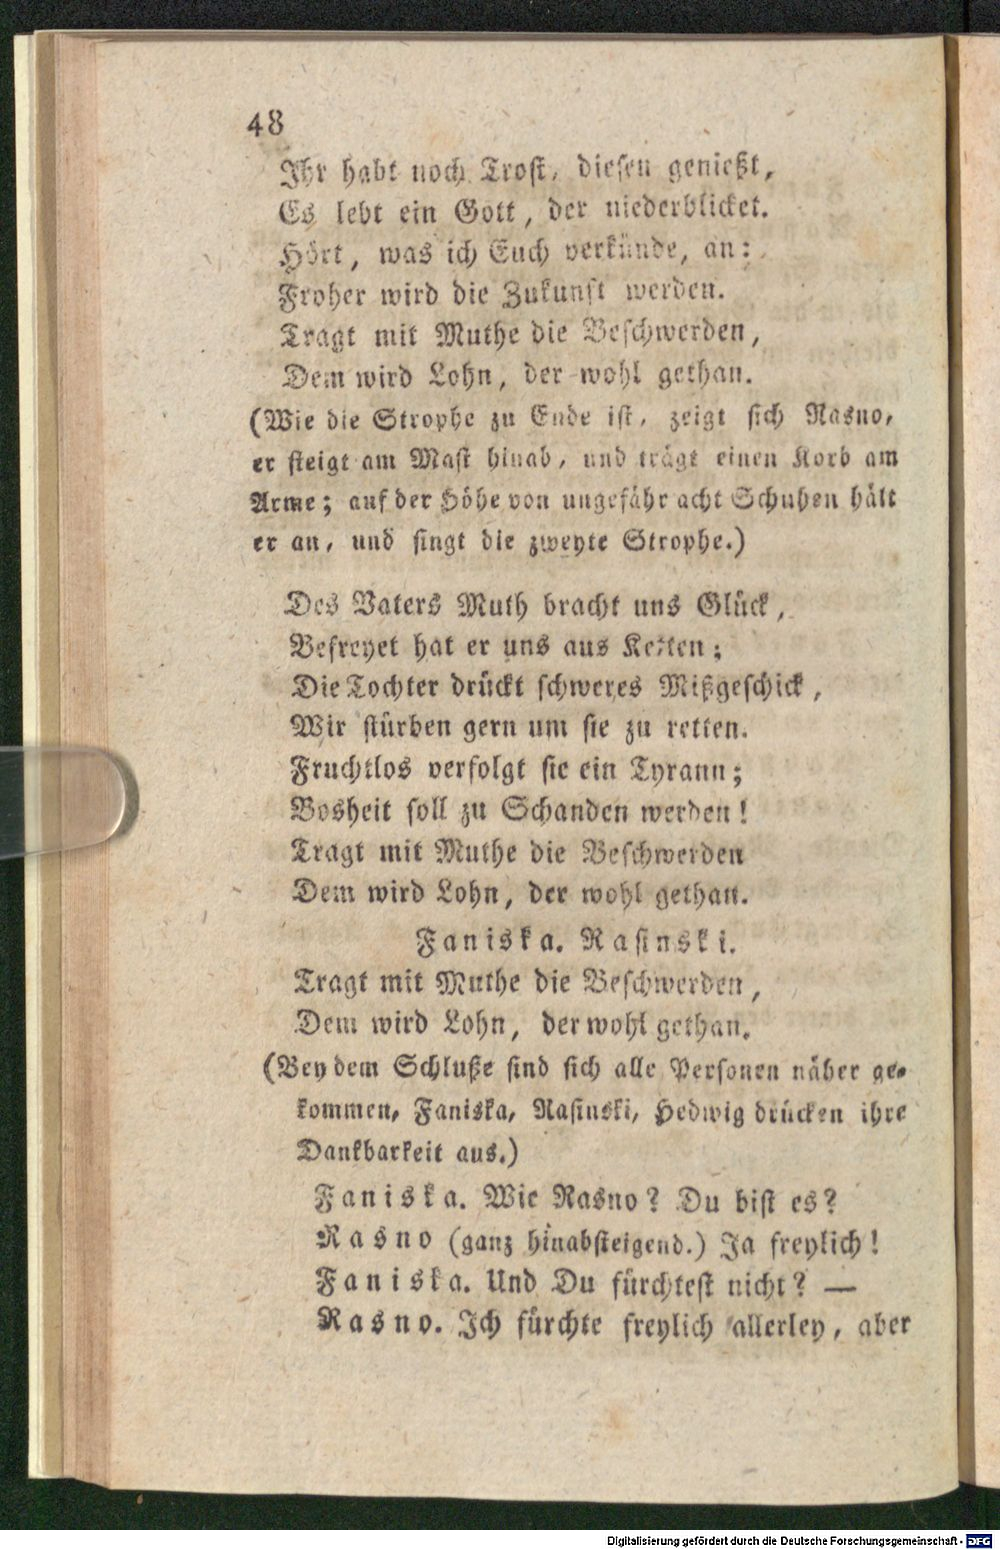 48
Ihr habt noch Trost, diesen genießt,
Es lebt ein Gott, der niederblicket.
Hört, was ich Euch verkünde, an:
Froher wird die Zukunft werden.
Tragt mit Muthe die Beschwerden,
Dem wird Lohn, der wohl gethan.
(Wie die Strophe zu Ende ist, zeigt sich Rasno,
er steigt am Mast hinab, und trägt einen Korb am
Arme; auf der Höhe von ungefähr acht Schuhen hält
er an, und singt die zweyte Strophe.)
Des Vaters Muth bracht uns Glück,
Befreyet hat er uns aus Ketten;
Die Tochter drückt schweres Mißgeschick,
Wir stürben gern um sie zu retten.
Fruchtlos verfolgt sie ein Tyrann;
Bosheit soll zu Schanden werden!
Tragt mit Muthe die Beschwerden
Dem wird Lohn, der wohl gethan.
Faniska. Rasinski.
Tragt mit Muthe die Beschwerden,
Dem wird Lohn, der wohl gethan.
(Bey dem Schluße sind sich alle Personen näher ge-
kommen, Faniska, Rasinski, Hedwig drücken ihre
Dankbarkeit aus.)
Faniska. Wie Rasno? Du bist es?
Rasno (ganz hinabsteigend.) Ja freylich!
Faniska. Und Du fürchtest nicht? —
Rasno. Ich fürchte freylich allerley, aber
Digitalisierung gefördert durch die Deutsche Forschungsgemeinschaft - DFG